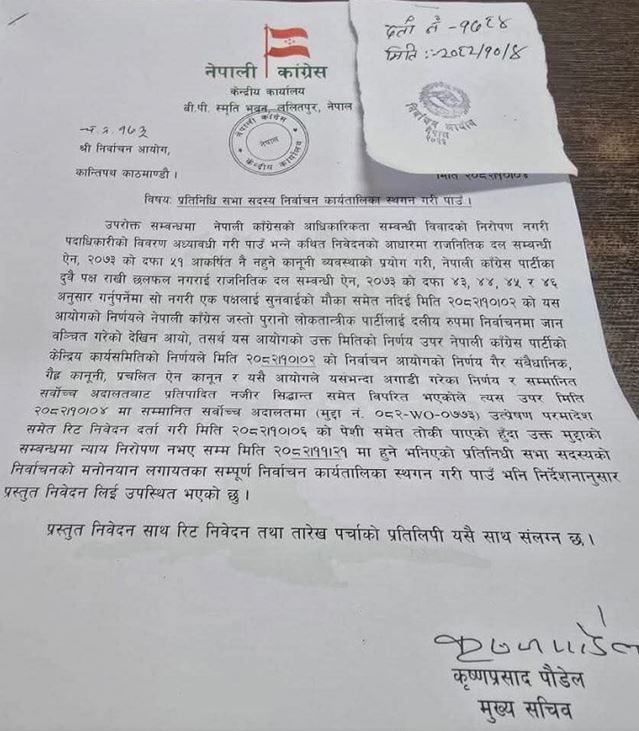 दर्ता नं -१७६४
मिति :-२०८२/१०/४
निर्वाचन आयोग
नेपाल
नेपाली कांग्रेस
केन्द्रीय कार्यालय
बी.पी. स्मृति भवन, ललितपुर, नेपाल
नेपाली कांग्रेस
नेपाल
केन्द्रीय कार्यालय
च.नं. १७३
श्री निर्वाचन आयोग,
कान्तिपथ काठमाण्डौ ।
मिति २०८२।१०।०४
विषय: प्रतिनिधि सभा सदस्य निर्वाचन कार्यतालिका स्थगन गरी पाउँ ।
उपरोक्त सम्बन्धमा नेपाली कांग्रेसको आधिकारिकता सम्बन्धी विवादको निरोपण नगरी
पदाधिकारीको विवरण अध्यावधी गरी पाउँ भन्ने कथित निवेदनको आधारमा राजनितिक दल सम्बन्धी
ऐन, २०७३ को दफा ५१ आकर्षित नै नहुने कानूनी व्यवस्थाको प्रयोग गरी, नेपाली कांग्रेस पार्टीका
दुवै पक्ष राखी छलफल नगराई राजनितिक दल सम्बन्धी ऐन, २०७३ को दफा ४३, ४४, ४५ र ४६
अनुसार गर्नुपर्नेमा सो नगरी एक पक्षलाई सुनवाईको मौका समेत नदिई मिति २०८२।१०।०२ को यस
आयोगको निर्णयले नेपाली कांग्रेस जस्तो पुरानो लोकतान्त्रीक पार्टीलाई दलीय रुपमा निर्वाचनमा जान
वञ्चित गरेको देखिन आयो, तसर्थ यस आयोगको उक्त मितिको निर्णय उपर नेपाली कांग्रेस पार्टीको
केन्द्रिय कार्यसमितिको निर्णयले मिति २०८२।१०।०२ को निर्वाचन आयोगको निर्णय गैर संवैधानिक,
गैह्र कानूनी, प्रचलित ऐन कानून र यसै आयोगले यसंभन्दा अगाडी गरेका निर्णय र सम्मानित
सर्वोच्च अदालतबाट प्रतिपादित नजीर सिद्धान्त समेत विपरित भएकोले त्यस उपर मिति
२०८२।१०।०४ मा सम्मानित सर्वोच्च अदालतमा (मुद्दा नं. ०८२-WO-०७७३) उत्प्रेषण परमादेश
समेत रिट निवेदन दर्ता गरी मिति २०८२।१०।०६ को पेशी समेत तोकी पाएको हुँदा उक्त मुद्दाको
सम्बन्धमा न्याय निरोपण नभए सम्म मिति २०८२।११।२१ मा हुने भनिएको प्रतिनिधी सभा सदस्यको
निर्वाचनको मनोनयान लगायतका सम्पूर्ण निर्वाचन कार्यतालिका स्थगन गरी पाउँ भनि निर्देशनानुसार
प्रस्तुत निवेदन लिई उपस्थित भएको छु ।
प्रस्तुत निवेदन साथ रिट निवेदन तथा तारेख पर्चाको प्रतिलिपी यसै साथ संलग्न छ ।
कृष्णप्रसाद पौडेल
मुख्य सचिव